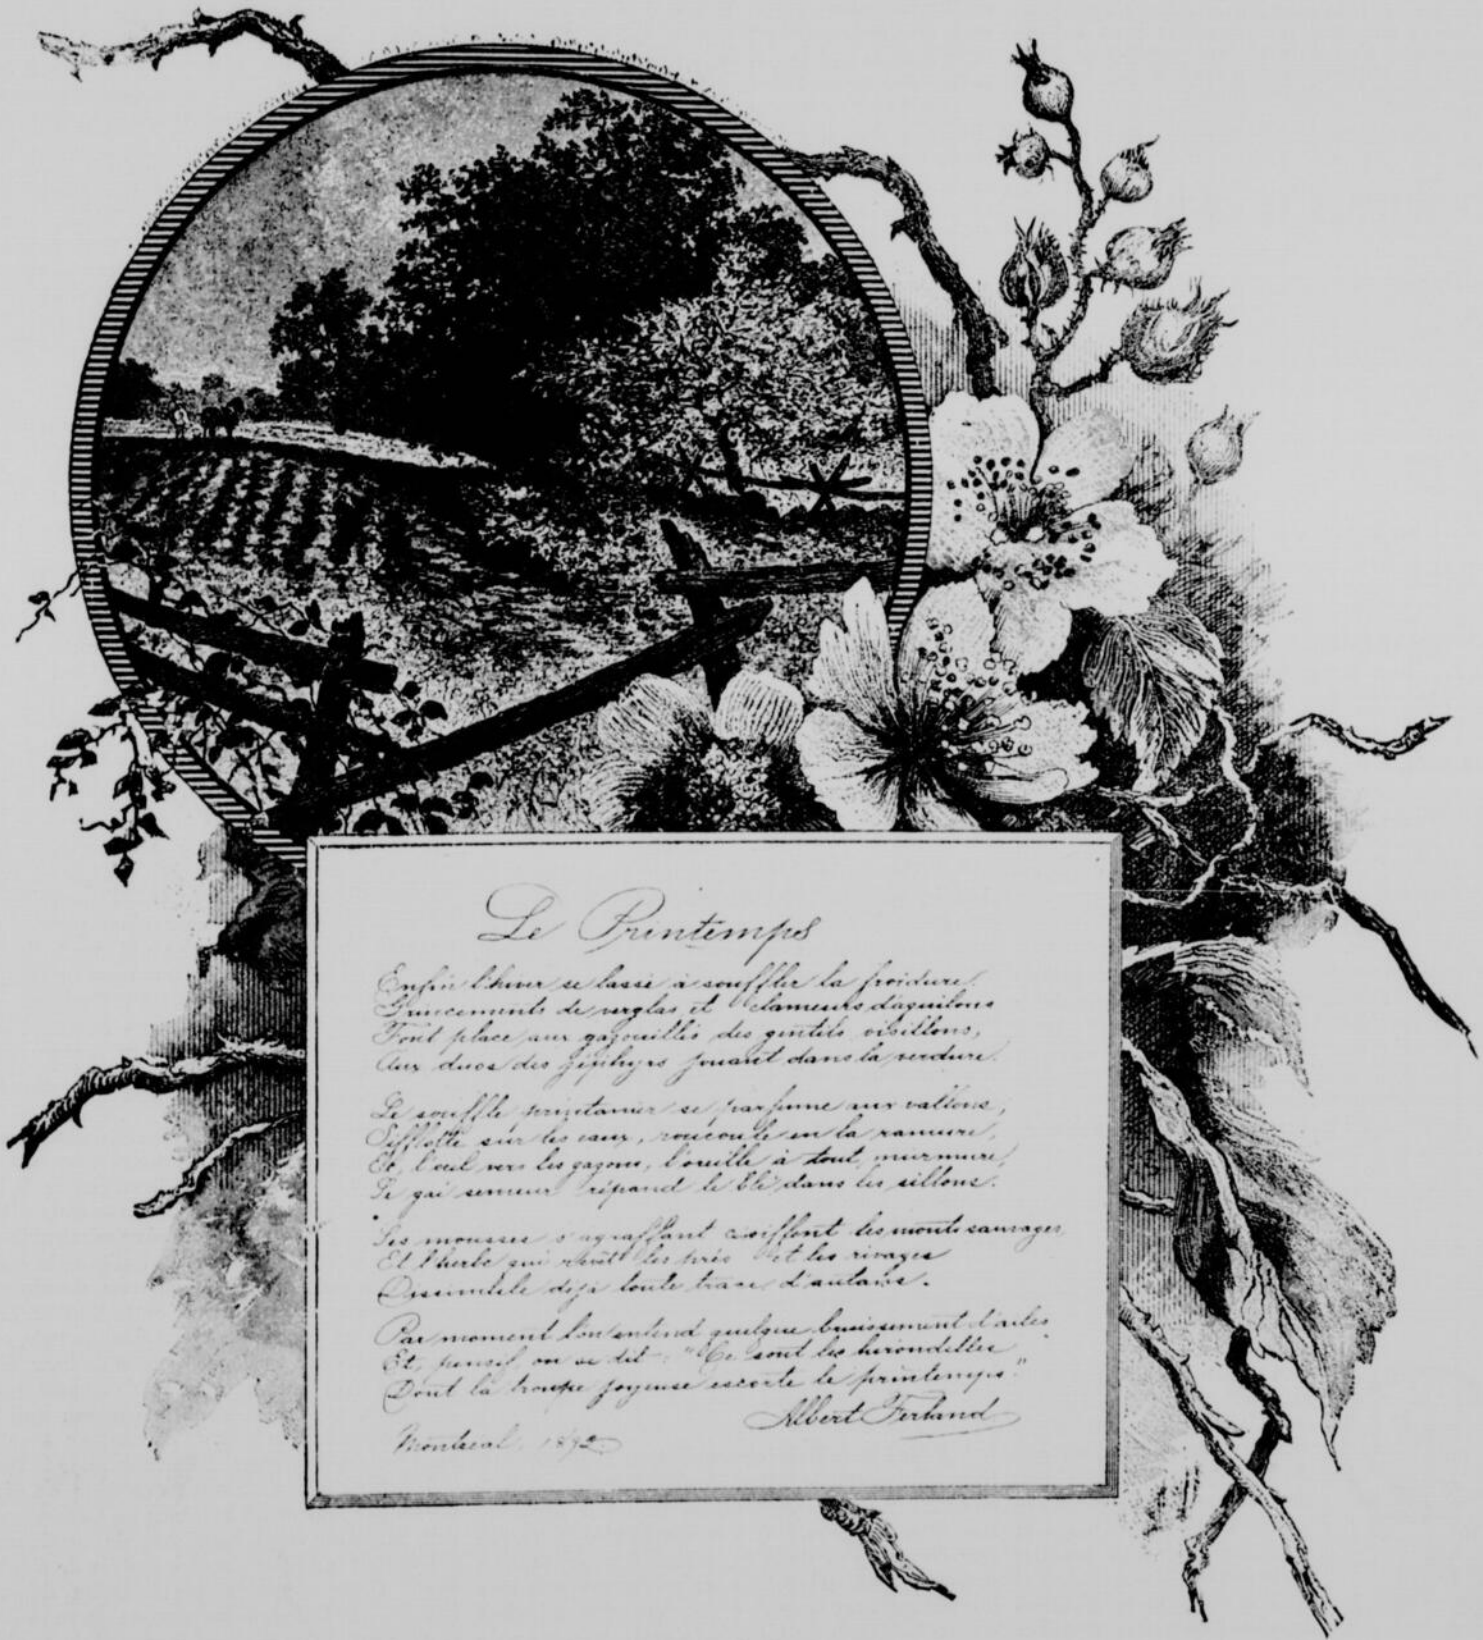 Le Printemps
Enfin l'hiver se lasse à souffler la froidure.
Grincements de verglas et clameurs d'aquilons
Font place aux gazouillis des gentils oisillons,
Aux duos des zéphyrs jouant dans la verdure.
Le souffle printanier se parfume aux vallons,
Sifflotte sur les eaux, roucoule en la ramure,
Et, l'œil vers les gazons, l'oreille à tout murmure,
Le gai semeur répand le blé dans les sillons.
Les mousses s'agraffant coiffent les monts sauvages
Et l'herbe qui revêt les prés et les rivages
Dissimule déjà toute trace d'antans.
Par moment l'on entend quelque bruissement d'ailes
Et, pensif, on se dit : "Ce sont les hirondelles
Dont la troupe joyeuse escorte le printemps."
Albert Ferland
Montréal, 1892